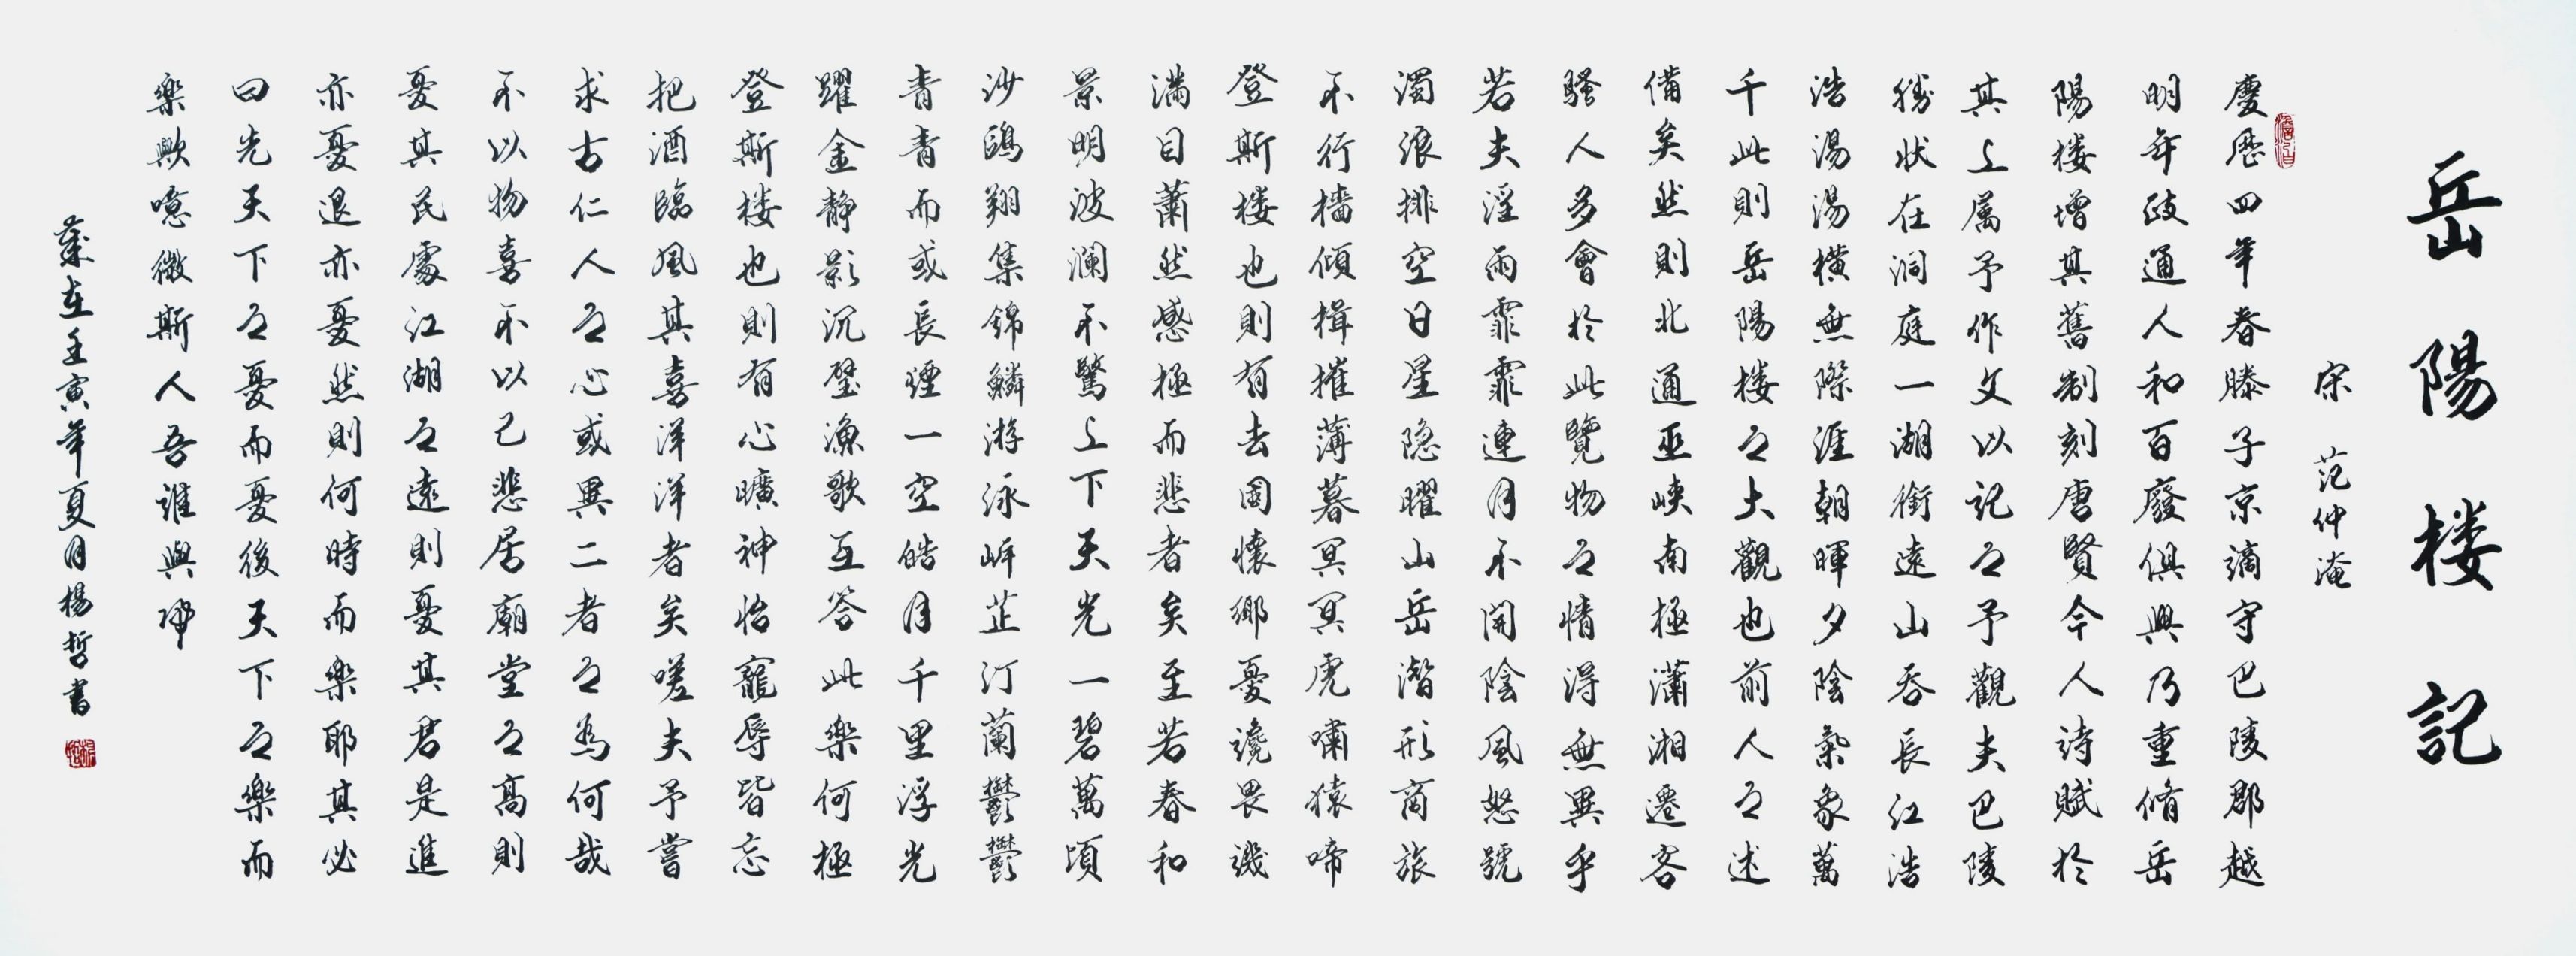 岳陽楼記
宋 范仲淹
慶歷四年春滕子京謫守巴陵郡越
明年政通人和百廢俱興乃重脩岳
陽楼增其舊制刻唐賢今人詩賦於
其上属予作文以記之予觀夫巴陵
勝状在洞庭一湖銜遠山吞長江浩
浩湯湯横無際涯朝暉夕陰氣象萬
千此則岳陽楼之大觀也前人之述
備矣然則北通巫峡南極瀟湘遷客
騷人多會於此覽物之情得無異乎
若夫淫雨霏霏連月不開陰風怒號
濁浪排空日星隐曜山岳潛形商旅
不行檣傾楫摧薄暮冥冥虎嘯猿啼
登斯楼也則有去國懷鄉憂讒畏譏
满目蕭然感極而悲者矣至若春和
景明波澜不驚上下天光一碧萬頃
沙鷗翔集錦鱗游泳岸芷汀蘭鬱鬱
青青而或長煙一空皓月千里浮光
躍金静影沉璧漁歌互答此樂何極
登斯楼也則有心曠神怡寵辱皆忘
把酒臨風其喜洋洋者矣嗟夫予嘗
求古仁人之心或異二者之為何哉
不以物喜不以己悲居廟堂之高則
憂其民處江湖之遠則憂其君是進
亦憂退亦憂然則何時而樂耶其必
曰先天下之憂而憂後天下之樂而
樂歟噫微斯人吾誰與歸
歲在壬寅年夏月楊哲書